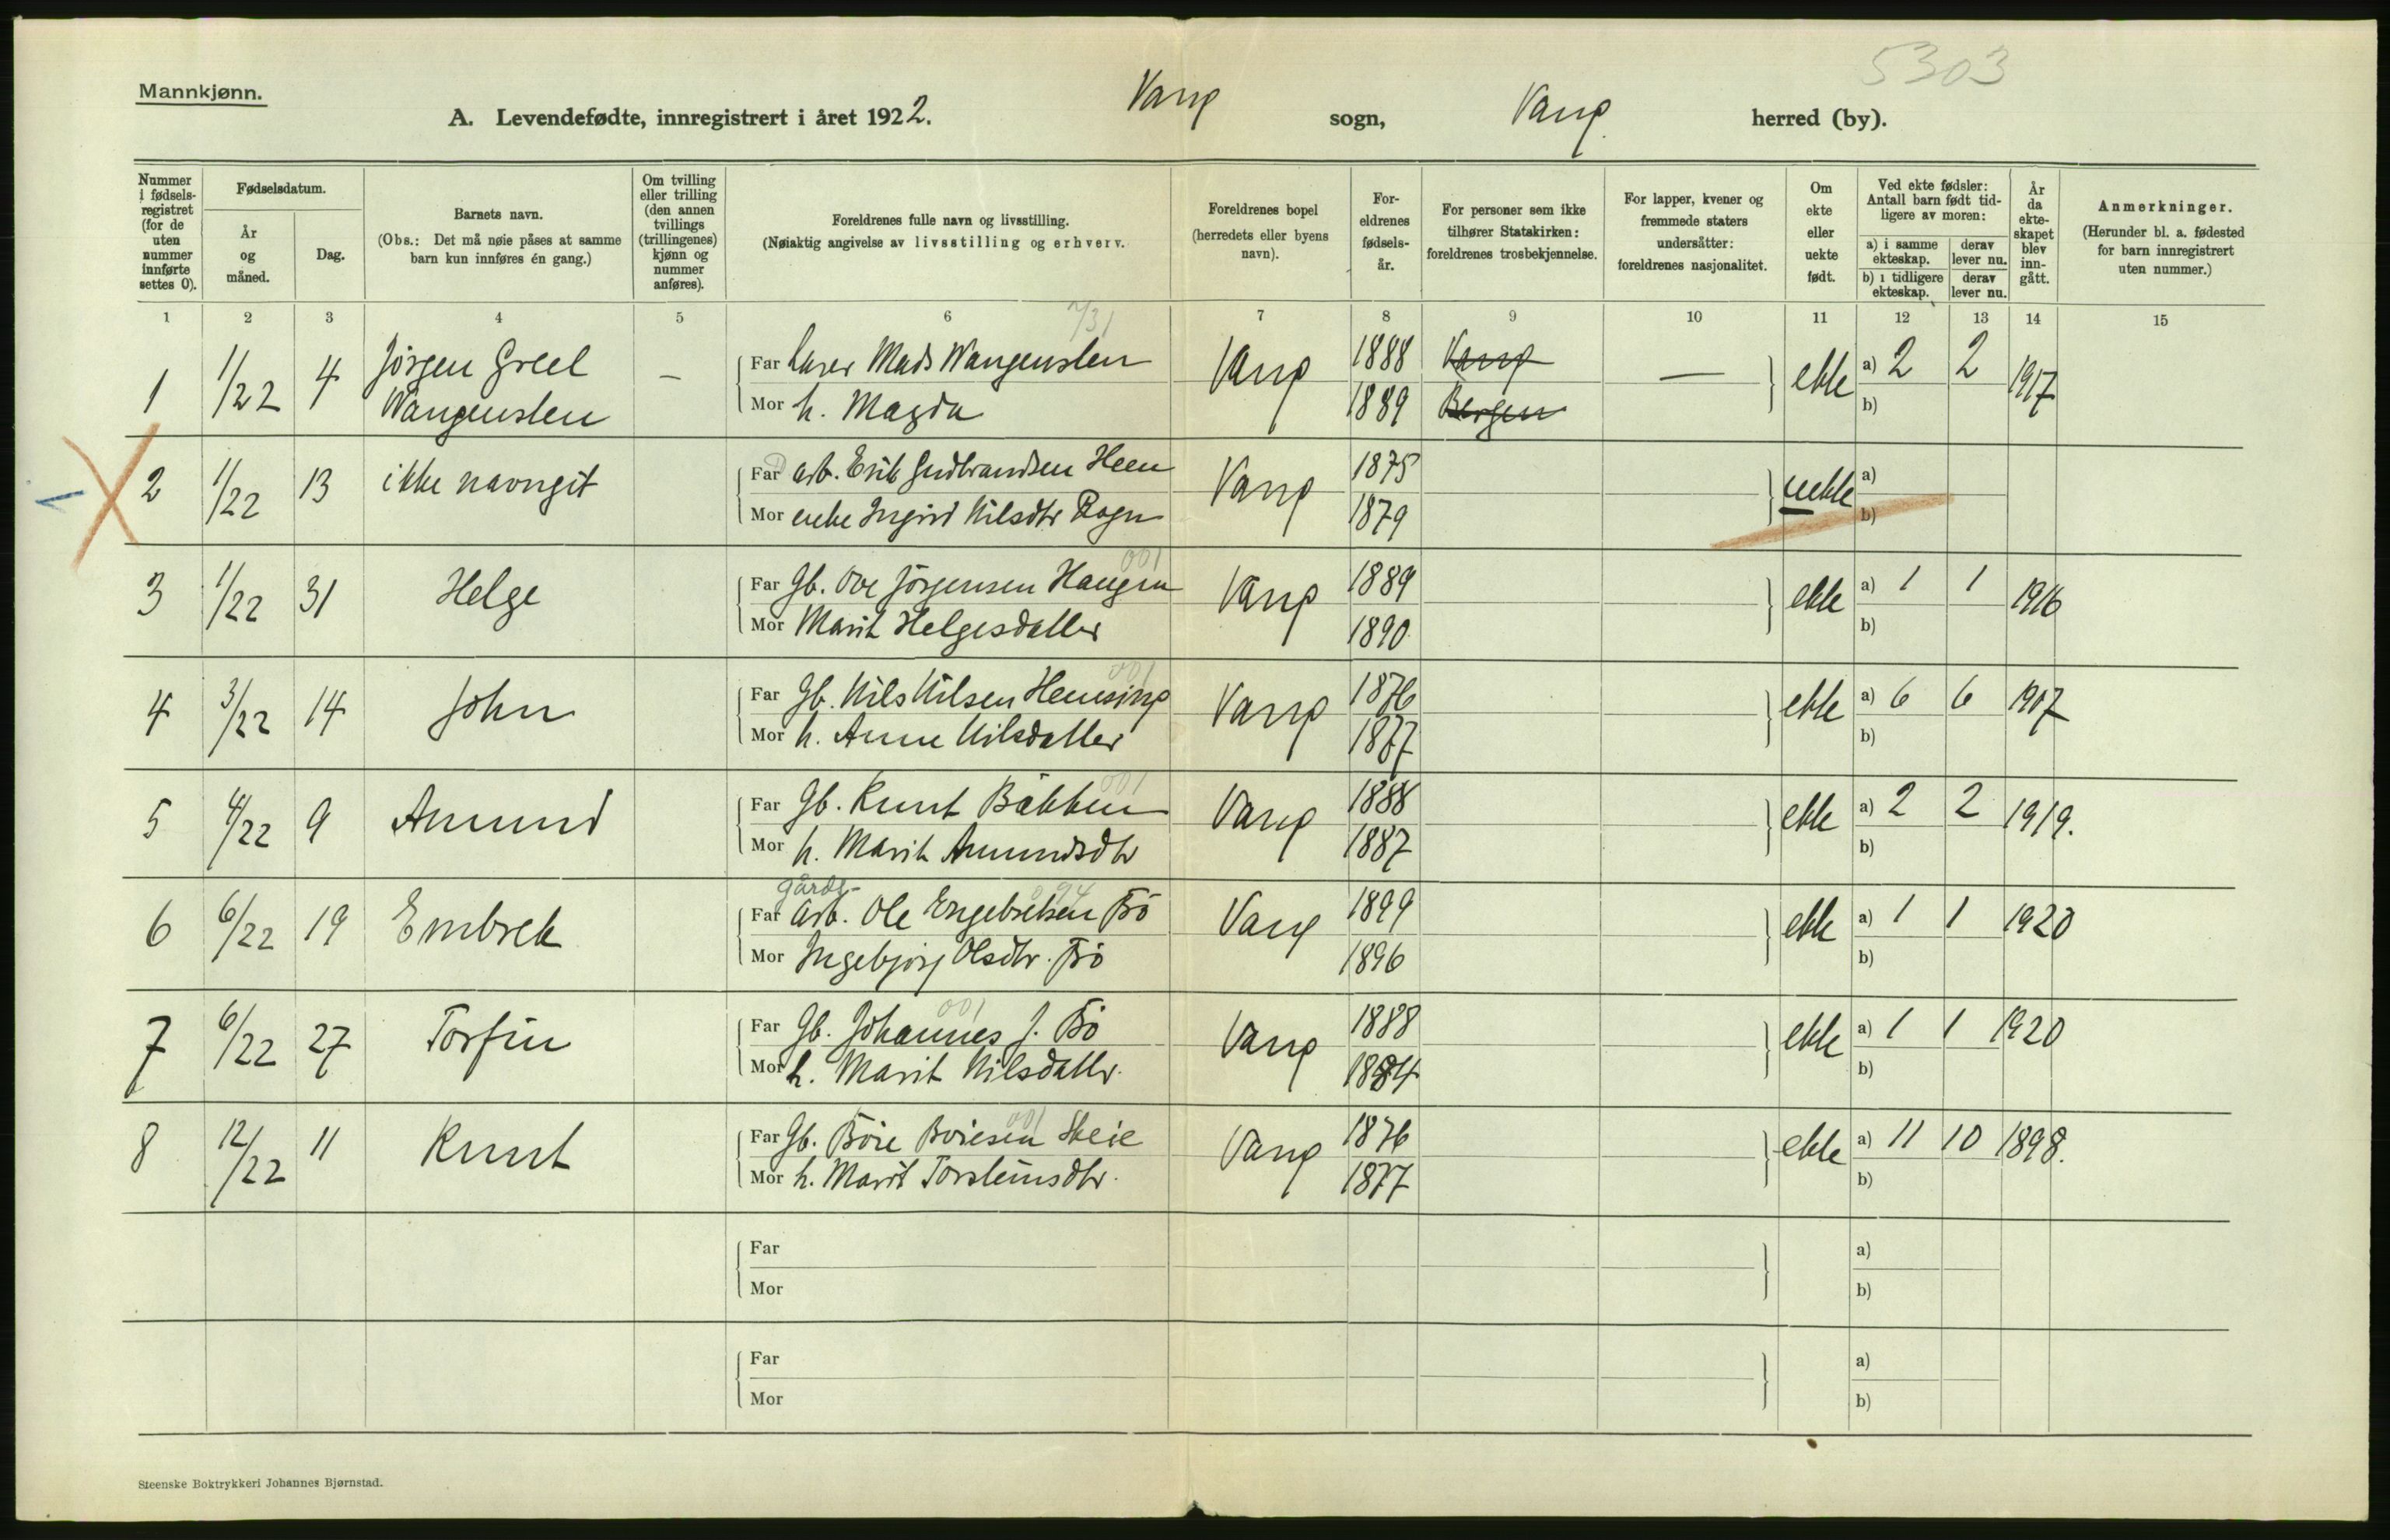 5303
Mannkjønn.
A. Levendefødte, innregistrert i året 1922. Vang sogn, Vang herred (by).
Nummer i fødsels-registret (for de uten nummer innførte settes 0).
Fødselsdatum.
År og måned.
Dag.
Barnets navn.
(Obs.: Det må nøie påses at samme barn kun innføres én gang.)
Om tvilling eller trilling (den annen tvillings (trillingenes) kjønn og nummer anføres).
Foreldrenes fulle navn og livsstilling.
(Nøiaktig angivelse av livsstilling og erhverv.
Foreldrenes bopel (herredets eller byens navn).
For-eldrenes fødsels-år.
For personer som ikke tilhører Statskirken: foreldrenes trosbekjennelse.
For lapper, kvener og fremmede staters undersåtter: foreldrenes nasjonalitet.
Om ekte eller uekte født.
Ved ekte fødsler: Antall barn født tid-ligere av moren:
a) i samme ekteskap.
derav lever nu.
b) i tidligere ekteskap.
derav lever nu.
År da ekte-skapet blev inn-gått.
Anmerkninger.
(Herunder bl. a. fødested for barn innregistrert uten nummer.)
1 2 3 4 5 6 7 8 9 10 11 12 13 14 15
731
1 1/22 4 Jörgen Greel Wangensten — Far Lærer Mads Wangensten Vang 1888 Vang — ekte a) 2 2 1917
Mor h. Magda 1889 Bergen b)
2 1/22 13 ikke navngit Far arb. Erik Gudbrandsen Heen Vang 1875 uekte a)
Mor enke Ingrid Nilsdtr Rogn 1879 b)
001
3 1/22 31 Helge Far Gb. Ove Jörgensen Haugen Vang 1889 ekte a) 1 1 1916
Mor Marit Helgesdatter 1890 b)
001
4 3/22 14 John Far Gb. Nils Nilsen Hemsing Vang 1876 ekte a) 6 6 1907
Mor h. Anne Nilsdatter 1877 b)
001
5 4/22 9 Amund Far Gb. Knut Bakken Vang 1888 ekte a) 2 2 1919.
Mor h. Marit Amundsdtr 1887 b)
gårds- 094
6 6/22 19 Embrek Far arb. Ole Engebretsen Bö Vang 1899 ekte a) 1 1 1920
Mor Ingebjörg Olsdtr. Bö 1896 b)
001
7 6/22 27 Torfin Far Gb. Johannes J. Bö Vang 1888 ekte a) 1 1 1920
Mor h. Marit Nilsdattr. 1884 b)
001
8 12/22 11 Knut Far Gb. Böie Boiesen Skeie Vang 1876 ekte a) 11 10 1898.
Mor h. Marit Torsteinsdtr. 1877 b)
Far a)
Mor b)
Far a)
Mor b)
Steenske Boktrykkeri Johannes Bjørnstad.